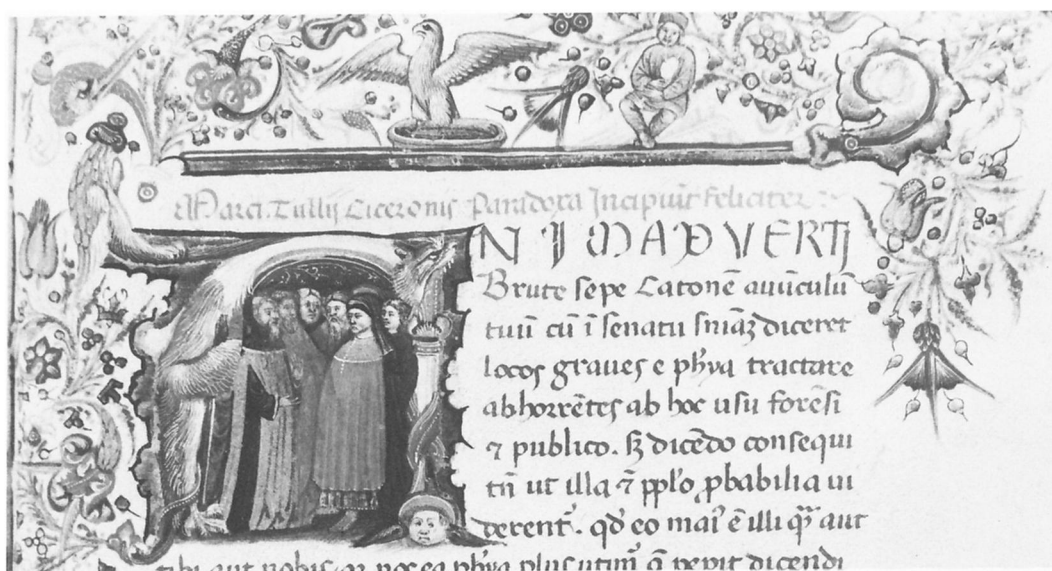 Marci Tullij Ciceronis Paradoxa Incipiūt feliciter
ANIMADVERTI
Brute sepe Catonē auūculū
tuū cū ī senatu sniaꝫ diceret
locos graues e phya tractare
abhorrētes ab hoc usu forēsi
⁊ publico. sꝫ dicēdo consequi
tn̄ ut illa ⁊ pplo ꝓbabilia ui
derent᷑. qd̕ eo mai᷒ ē illi qꝫ aut
tibi aut nobis. nos ea phya plus utim᷑ q̄ pepit dicendi